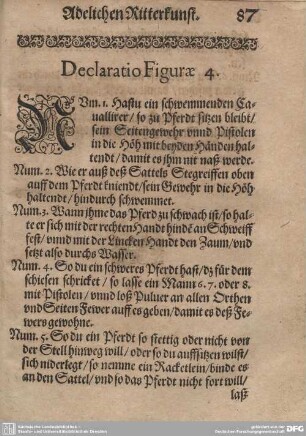 Adelichen Ritterkunst. 87
Declaratio Figuræ 4.
NVm. 1. Hastu ein schwemmenden Ca-
uallirer / so zu Pferdt sitzen bleibt /
sein Seitengewehr vnnd Pistolen
in die Höh mit beyden Händen hal-
tendt / damit es jhm nit naß werde.
Num. 2. Wie er auß deß Sattels Stegreiffen oben
auff dem Pferdt kniendt / sein Gewehr in die Höh
haltendt / hindurch schwemmet.
Num. 3. Wann jhme das Pferd zu schwach ist / so hal-
te er sich mit der rechten Handt hindẽ an Schweiff
fest / vnnd mit der Lincken Handt den Zaum / vnd
setzt also durchs Wasser.
Num. 4. So du ein schweres Pferdt hast / dz für dem
schiesen schricket / so lasse ein Mann 6. 7. oder 8.
mit Pistolen / vnnd loß Puluer an allen Orthen
vnd Seiten Fewer auff es geben / damit es deß Fe-
wers gewohne.
Num. 5. So du ein Pferdt so stettig oder nicht von
der Stell hinweg will / oder so du auffsitzen wilst /
sich niderlegt / so nemme ein Racketlein / binde es
an den Sattel / vnd so das Pferdt nicht fort will /
laß